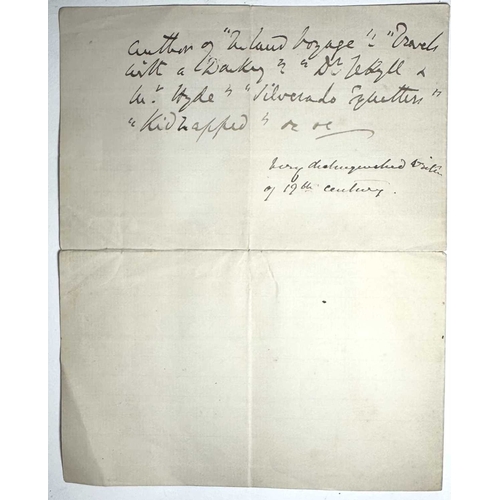 author of "Inland Voyage" "Travels
with a Donkey" "Dr. Jekyll &
Mr. Hyde" "Silverado Squatters"
"Kidnapped" &c &c
Very distinguished writer
of 19th century.